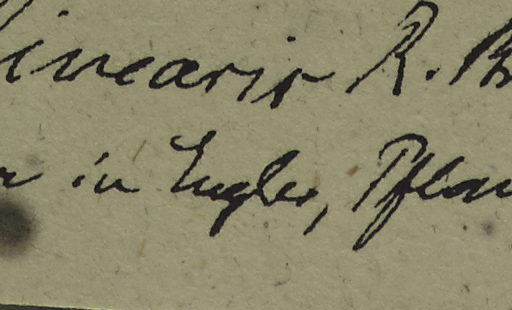 linearis R. Br
r in Engler, Pflan